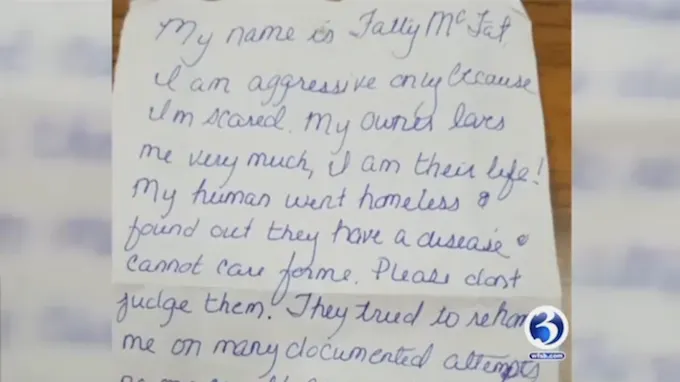 My name is Fatty McFat.
I am aggressive only because
I'm scared. My owner loves
me very much, I am their life!
My human went homeless &
found out they have a disease &
cannot care for me. Please dont
judge them. They tried to rehom
me on many documented attempts
3
wfsb.com